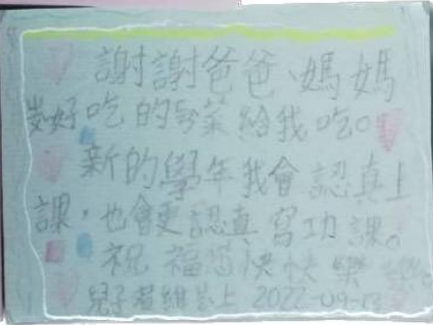 謝謝爸爸、媽媽
煮好吃的飯菜給我吃。
新的學年我會認真上
課，也會更認真寫功課。
祝福您快快樂樂。
兒子 維 上 2022-09-13